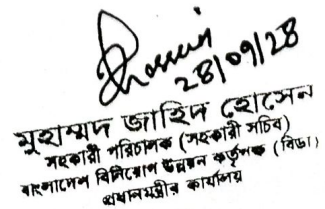 Hossain
২৪/০৭/২৪
মুহাম্মদ জাহিদ হোসেন
সহকারী পরিচালক (সহকারী সচিব)
বাংলাদেশ বিনিয়োগ উন্নয়ন কর্তৃপক্ষ (বিডা)
প্রধানমন্ত্রীর কার্যালয়